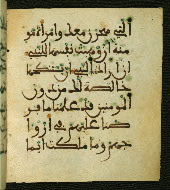 التي هاجرن معك وامراة مو
منة ان وهبت نفسها للنبي
ان اراد النبي ان يستنكحها
خالصة لك من دون
المومنين قد علمنا ما فر
ضنا عليهم في ازوا
جهم وما ملكت ايما